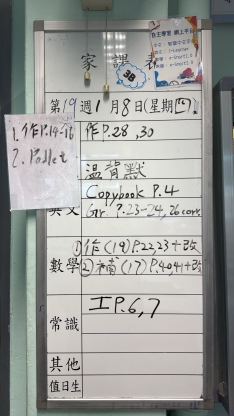 家課表
38
自主學習 網上平台
第19週1月8日(星期四)
1.作P.14-16
2. Padlet
作P.28,30
溫背默
Copybook P.4
英文
Gr. P.23-24, 26 corr.
①作(19)P.22,23+改
數學
②補(17)P.40,41+改
常識
工P.6,7
其他
值日生